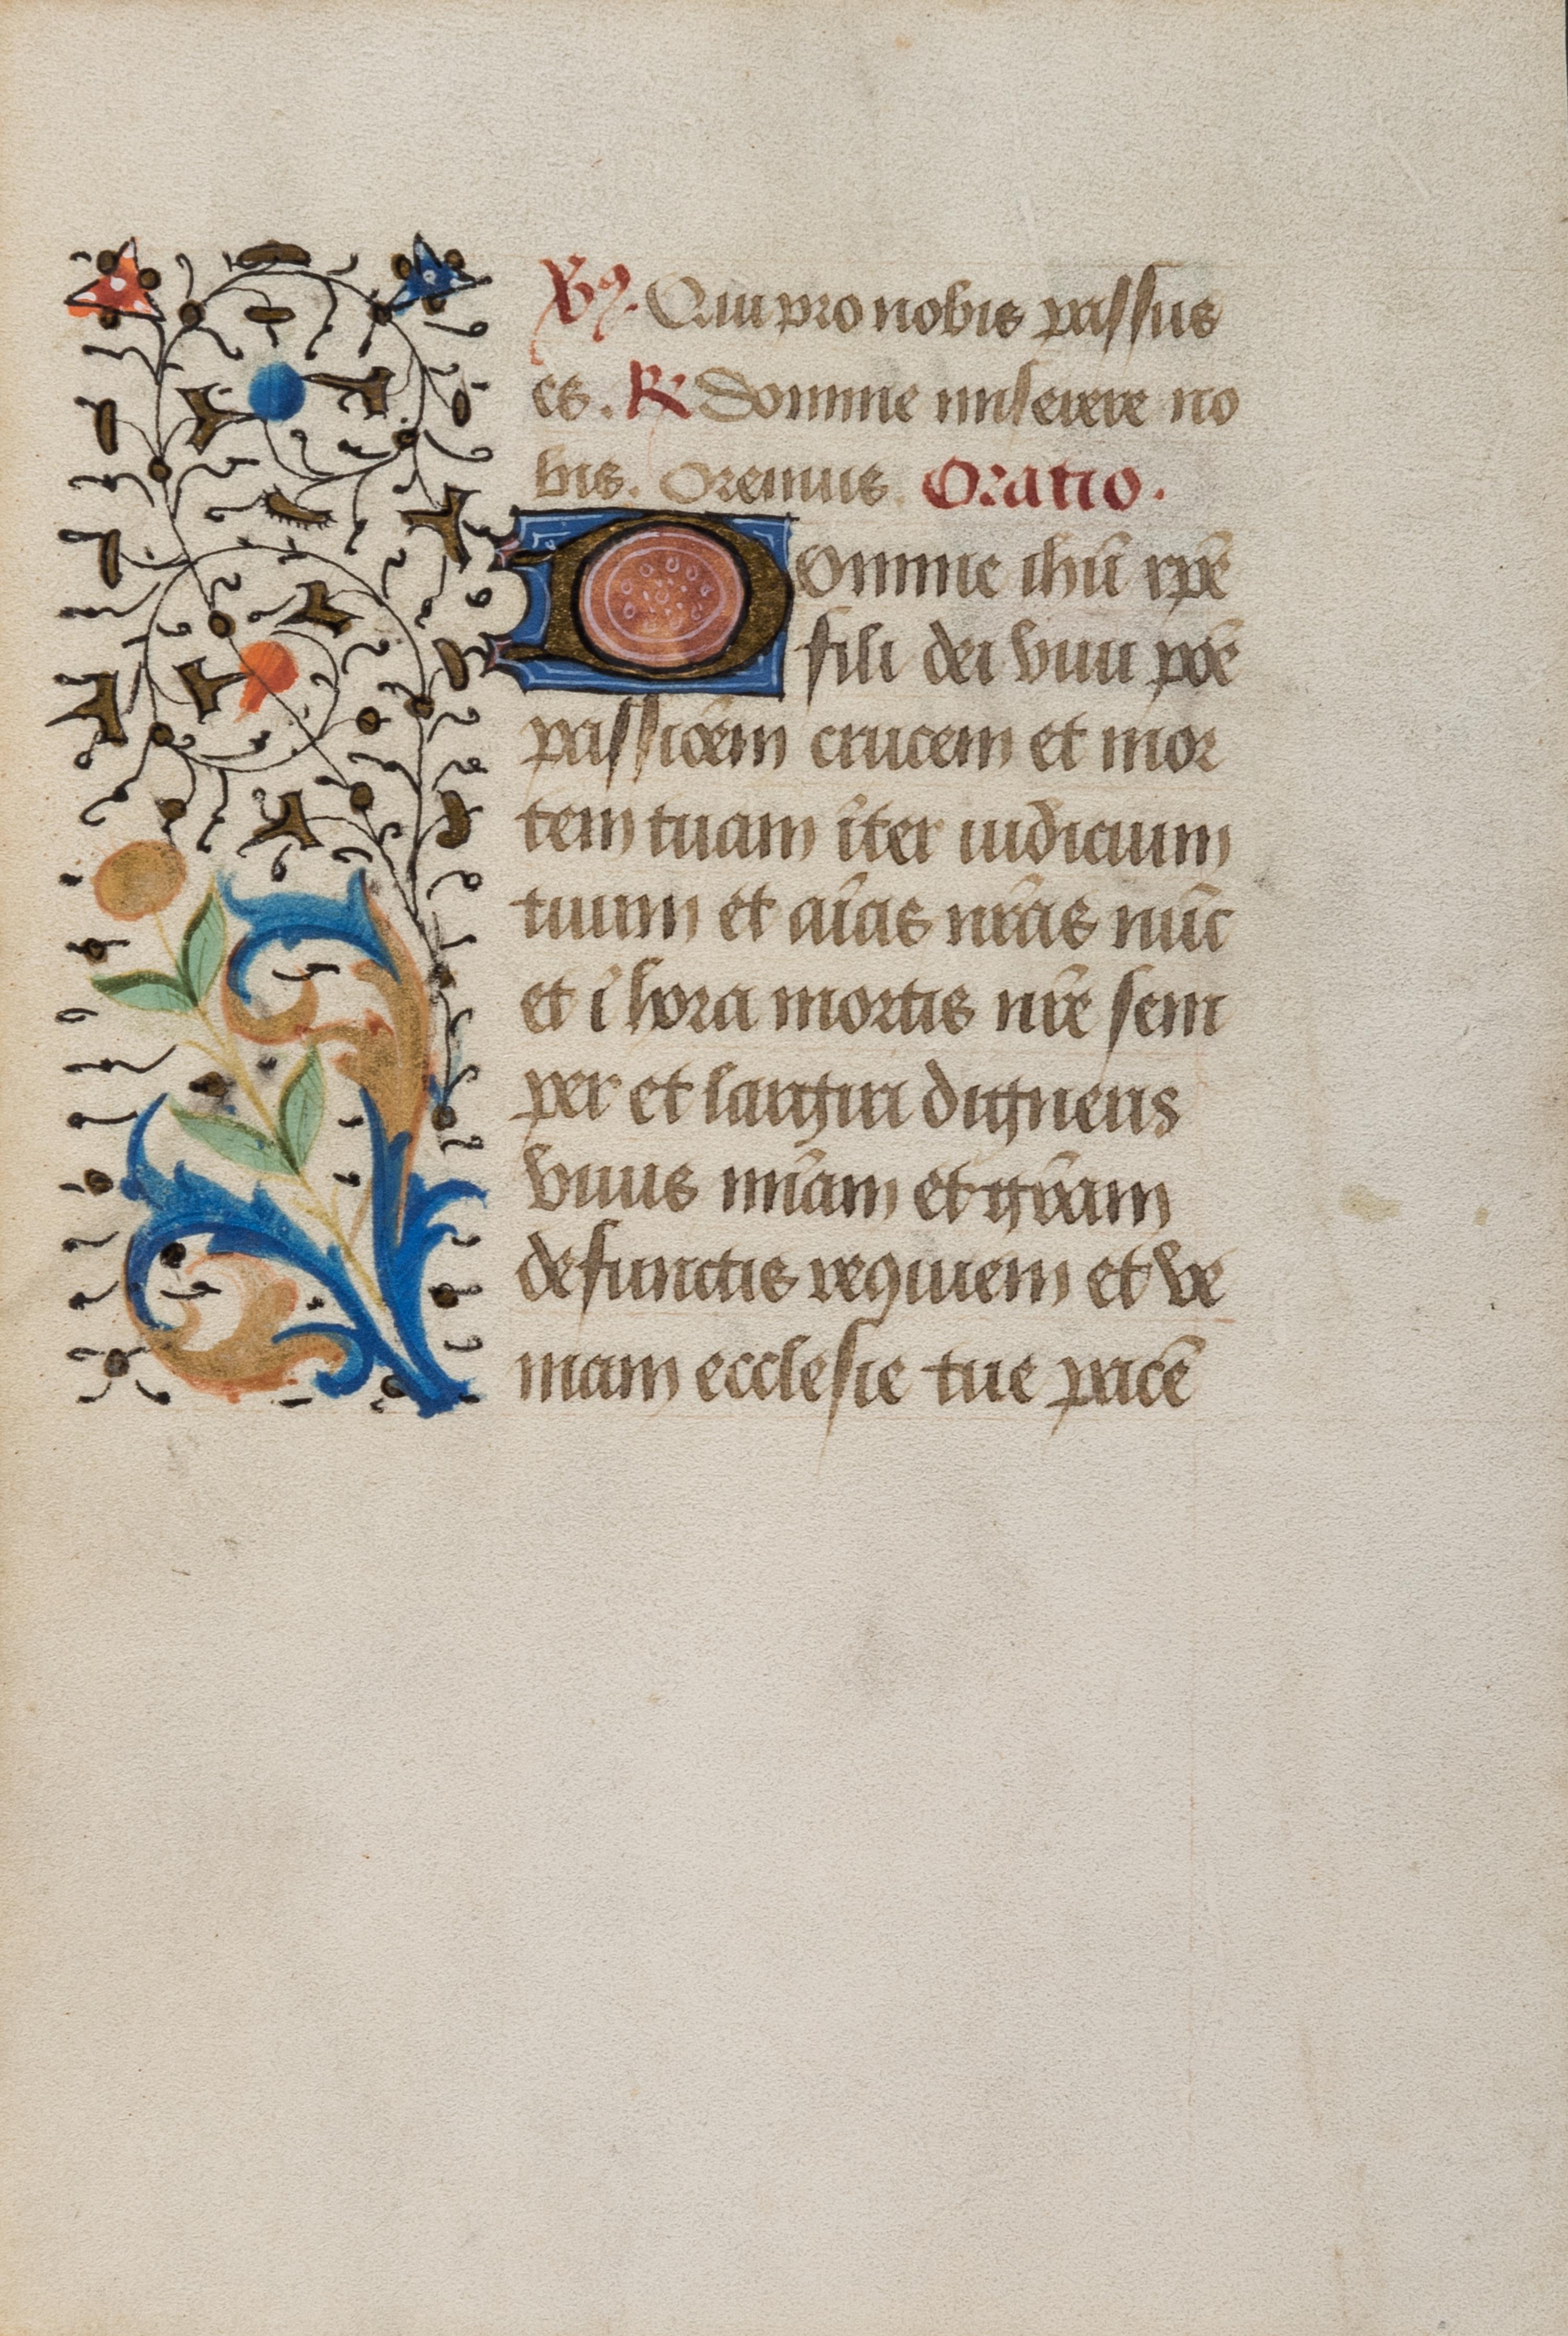 V. Qui pro nobis passus
es. R Domine miserere no
bis. Oremus. Oratio.
Domine ihū xp̄e
fili dei viui poē
passioēm crucem et mor
tem tuam īter iudicium
tuum et aīas nr̄as nūc
et ī hora mortis nr̄e sem
per et largiri digneris
viuis mīam et gr̄am
defunctis requiem et ve
niam ecclesie tue pacē